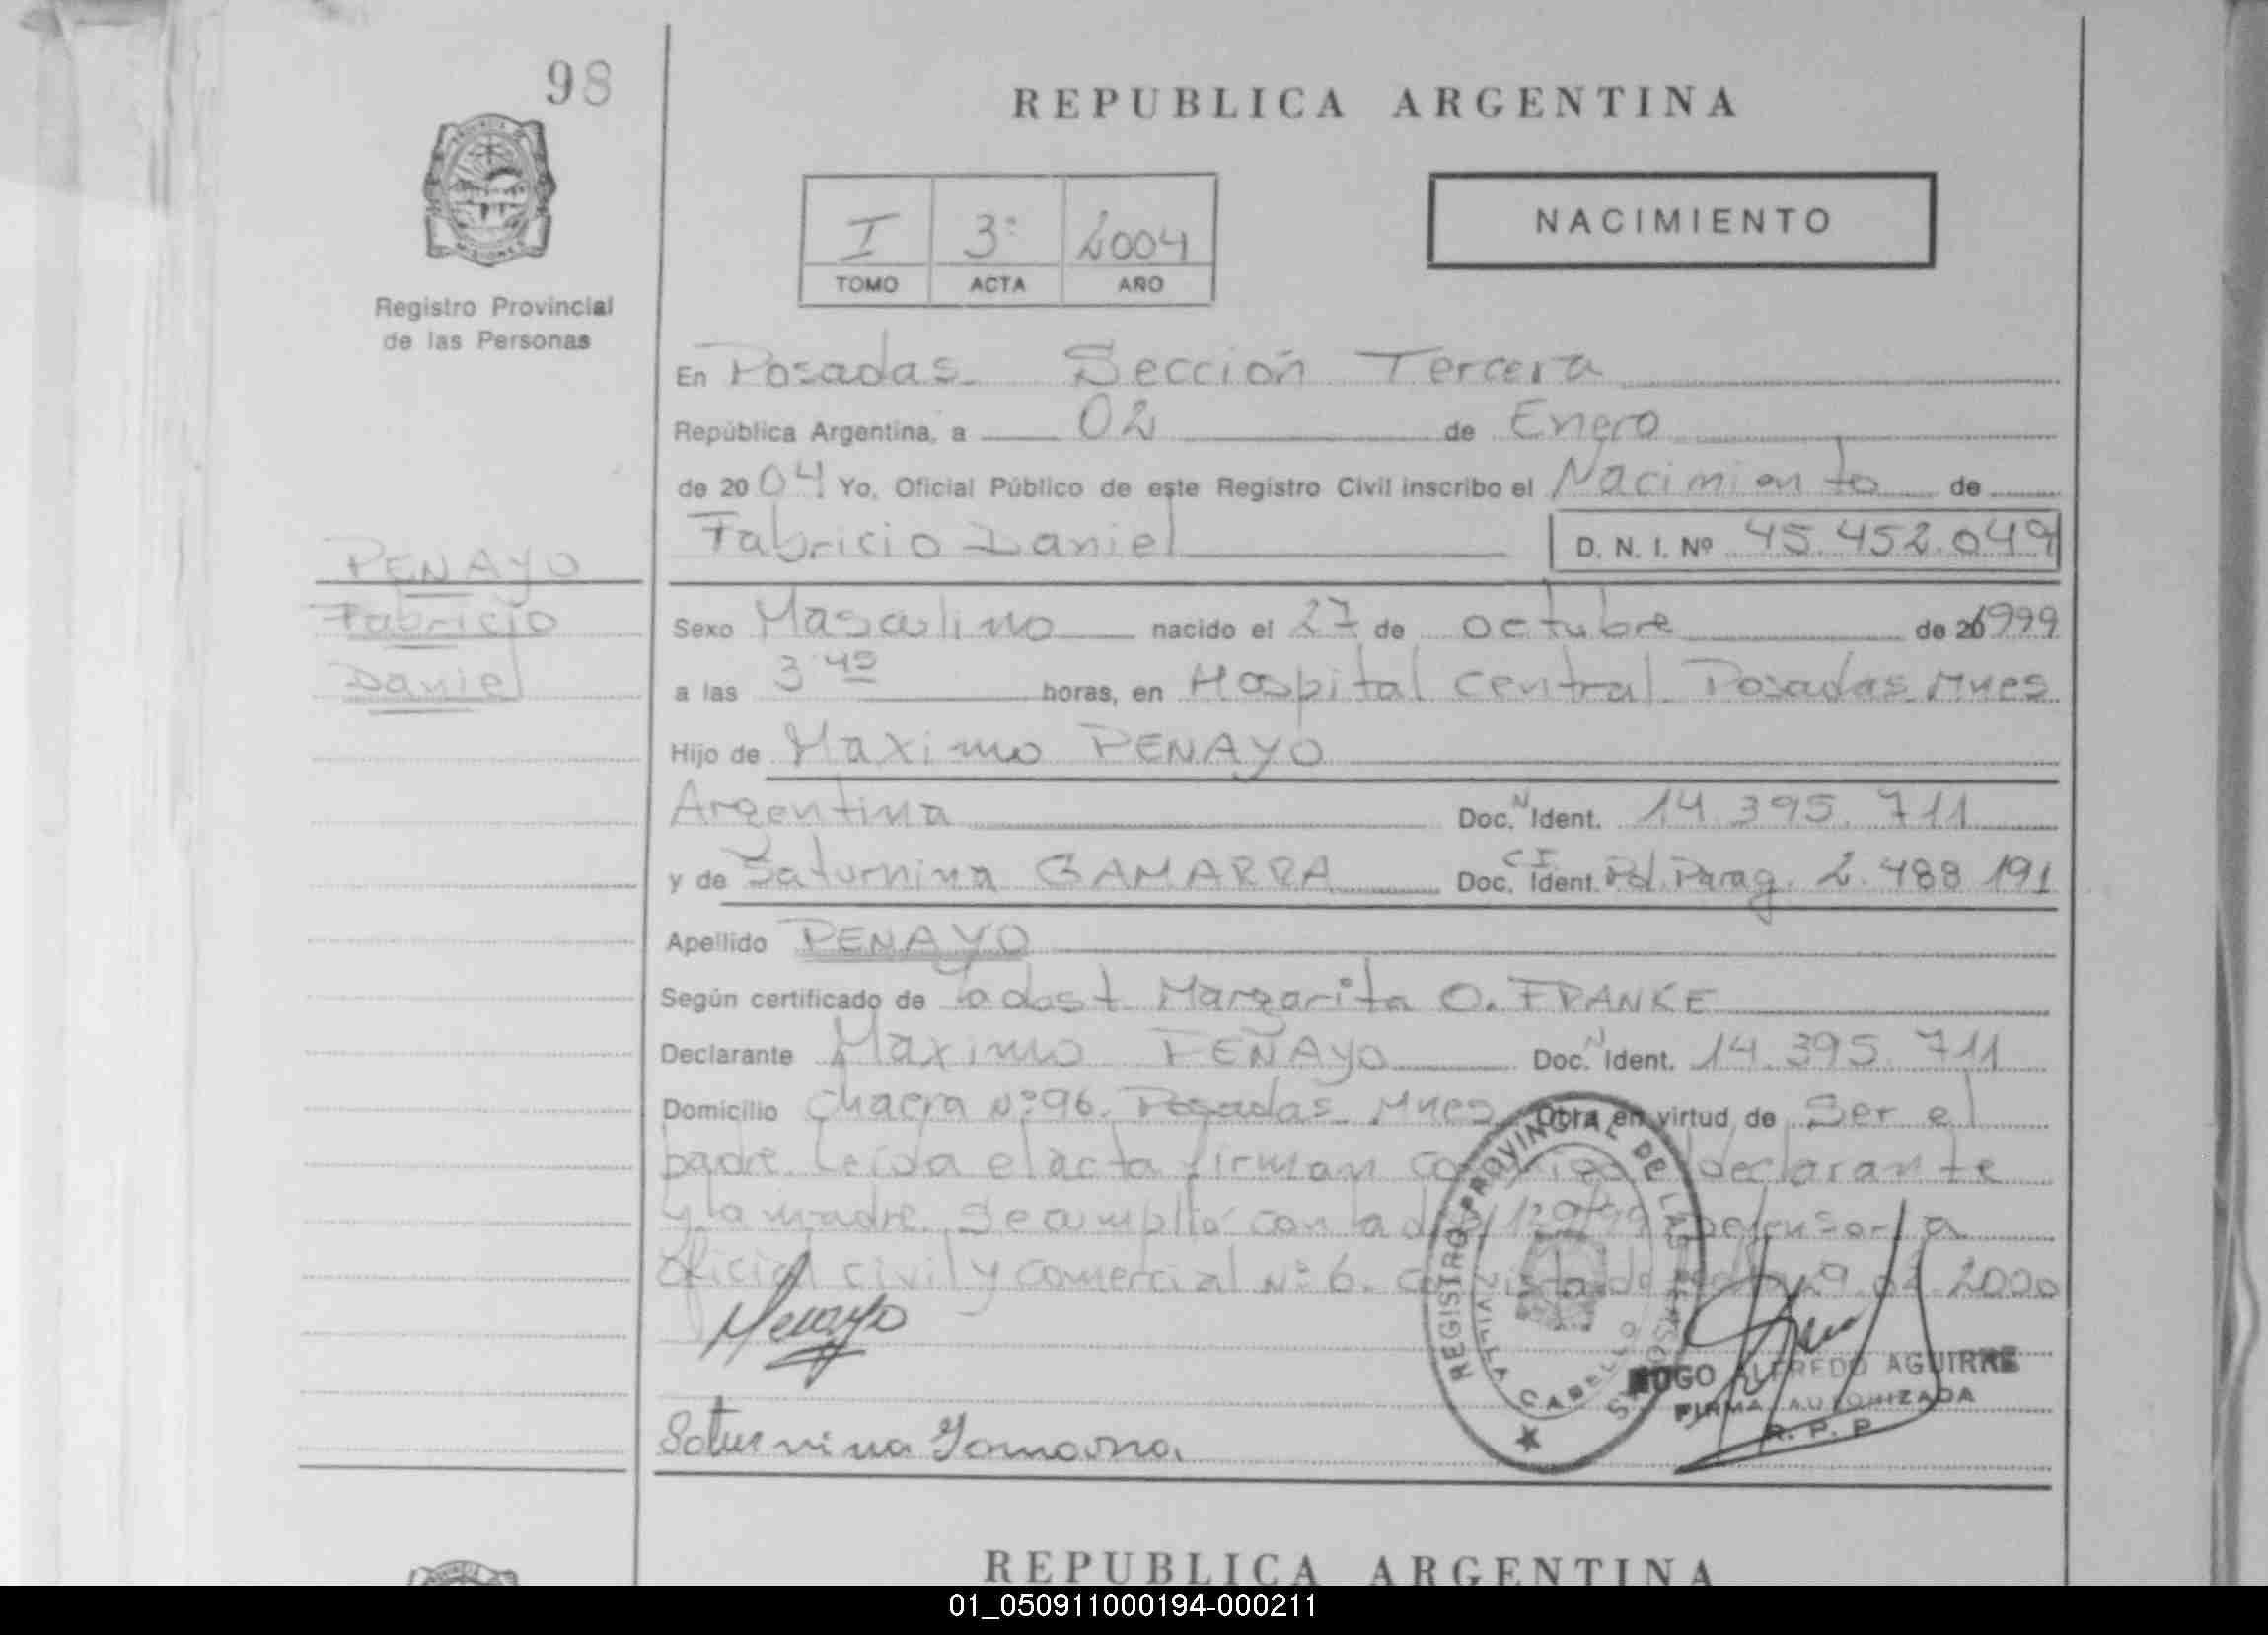 98
REPUBLICA ARGENTINA
I 3º 2004
TOMO ACTA AÑO
NACIMIENTO
Registro Provincial
de las Personas
En Posadas Sección Tercera
República Argentina, a 02 de Enero
de 2004 Yo, Oficial Público de este Registro Civil inscribo el Nacimiento de
Fabricio Daniel D. N. I. Nº 45.452.049
PENAYO
Fabricio
Daniel
Sexo Masculino nacido el 27 de octubre de 1999
a las 3 45 horas, en Hospital Central Posadas Mnes
Hijo de Maximo PENAYO
Argentina Doc. N Ident. 14.395.711
y de Saturnina GAMARRA Doc. C I Ident. Pol. Parag. 2.488 191
Apellido PENAYO
Según certificado de Margarita O. FRANKE
Declarante Maximo PENAYO Doc. N Ident. 14.395.711
Domicilio Chacra Nº 96. Posadas Mnes Obra en virtud de Ser el
padre. Leida el acta firman declarante
y la madre. Se cumplio con la Defensoria
oficial civil y comercial Nº 6. 2000
Penayo
Saturnina Gamarra
REGISTRO PROVINCIAL DE LAS PERSONAS
VILLA CABELLO
HUGO ALFREDO AGUIRRE
FIRMA AUTORIZADA
R. P. P.
REPUBLICA ARGENTINA
01_050911000194-000211